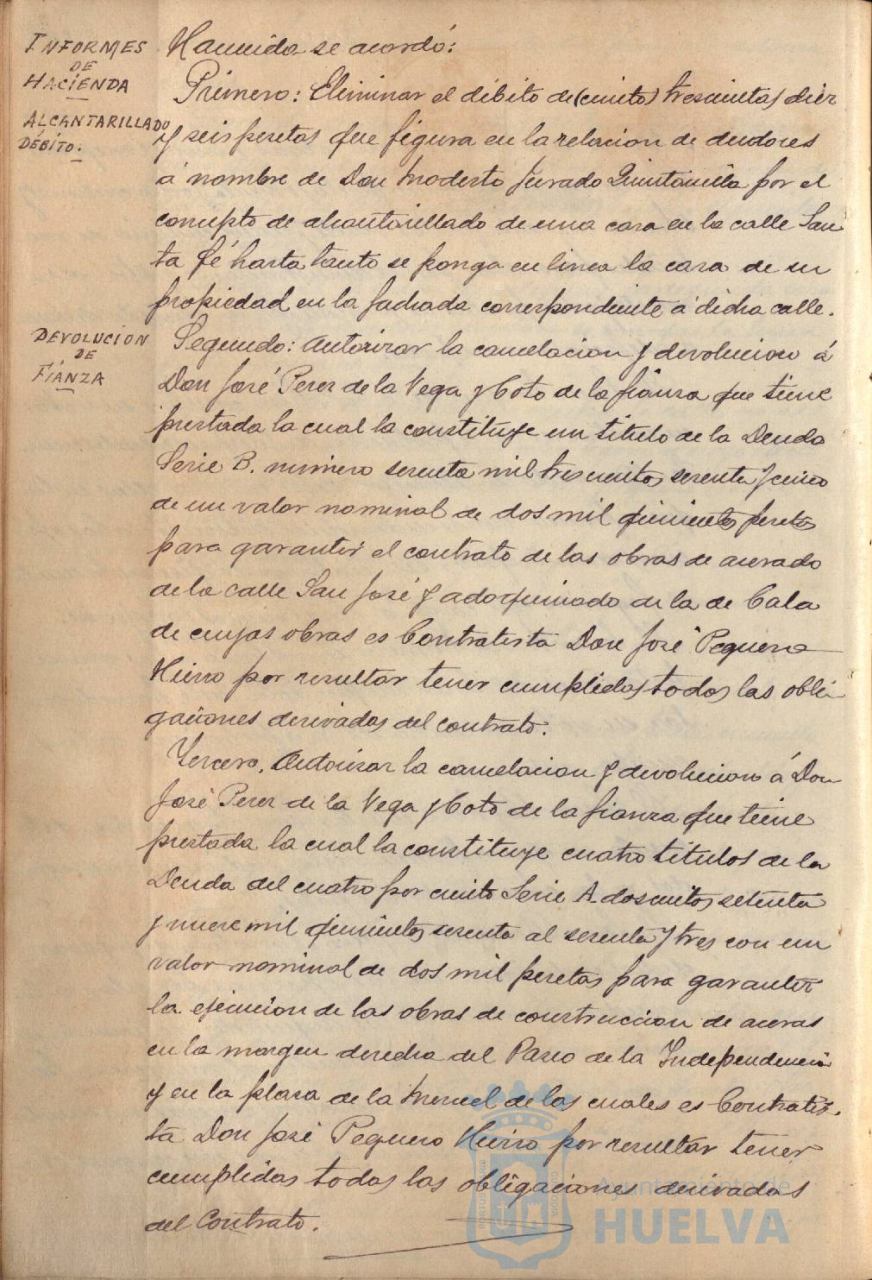 INFORMES
DE
HACIENDA
ALCANTARILLADO
DÉBITO.
Hacienda se acordó:
Primero: Eliminar el débito de (ciento) trescientas diez
y seis pesetas que figura en la relacion de deudores
á nombre de Don Modesto Jurado Quintanilla por el
concepto de alcantarillado de una casa en la calle San
ta Fé hasta tanto se ponga en linea la casa de su
propiedad en la fachada correspondiente á dicha calle.
DEVOLUCION
DE
FIANZA
Segundo: Autorizar la cancelacion y devolucion á
Don José Perez de la Vega y Coto de la fianza que tiene
prestada la cual la constituye un titulo de la Deuda
Serie B. numero sesenta mil trescientos sesenta y cinco
de un valor nominal de dos mil quinientas pesetas
para garantir el contrato de las obras de acerado
de la calle San José y adoquinado de la de Cala
de cuyas obras es Contratista Don José Peguero
Hierro por resultar tener cumplidas todas las obli
gaciones derivadas del contrato.
Tercero. Autorizar la cancelacion y devolucion á Don
José Perez de la Vega y Coto de la fianza que tiene
prestada la cual la constituye cuatro titulos de la
Deuda del cuatro por ciento Serie A. doscientos setenta
y nueve mil quinientos sesenta al sesenta y tres con un
valor nominal de dos mil pesetas para garantir
la ejecucion de las obras de construccion de aceras
en la margen derecha del Paseo de la Independencia
y en la plaza de la Merced de las cuales es Contratis.
ta Don José Peguero Hierro por resultar tener
cumplidas todas las obligaciones derivadas
del Contrato.
Ayuntamiento de
HUELVA